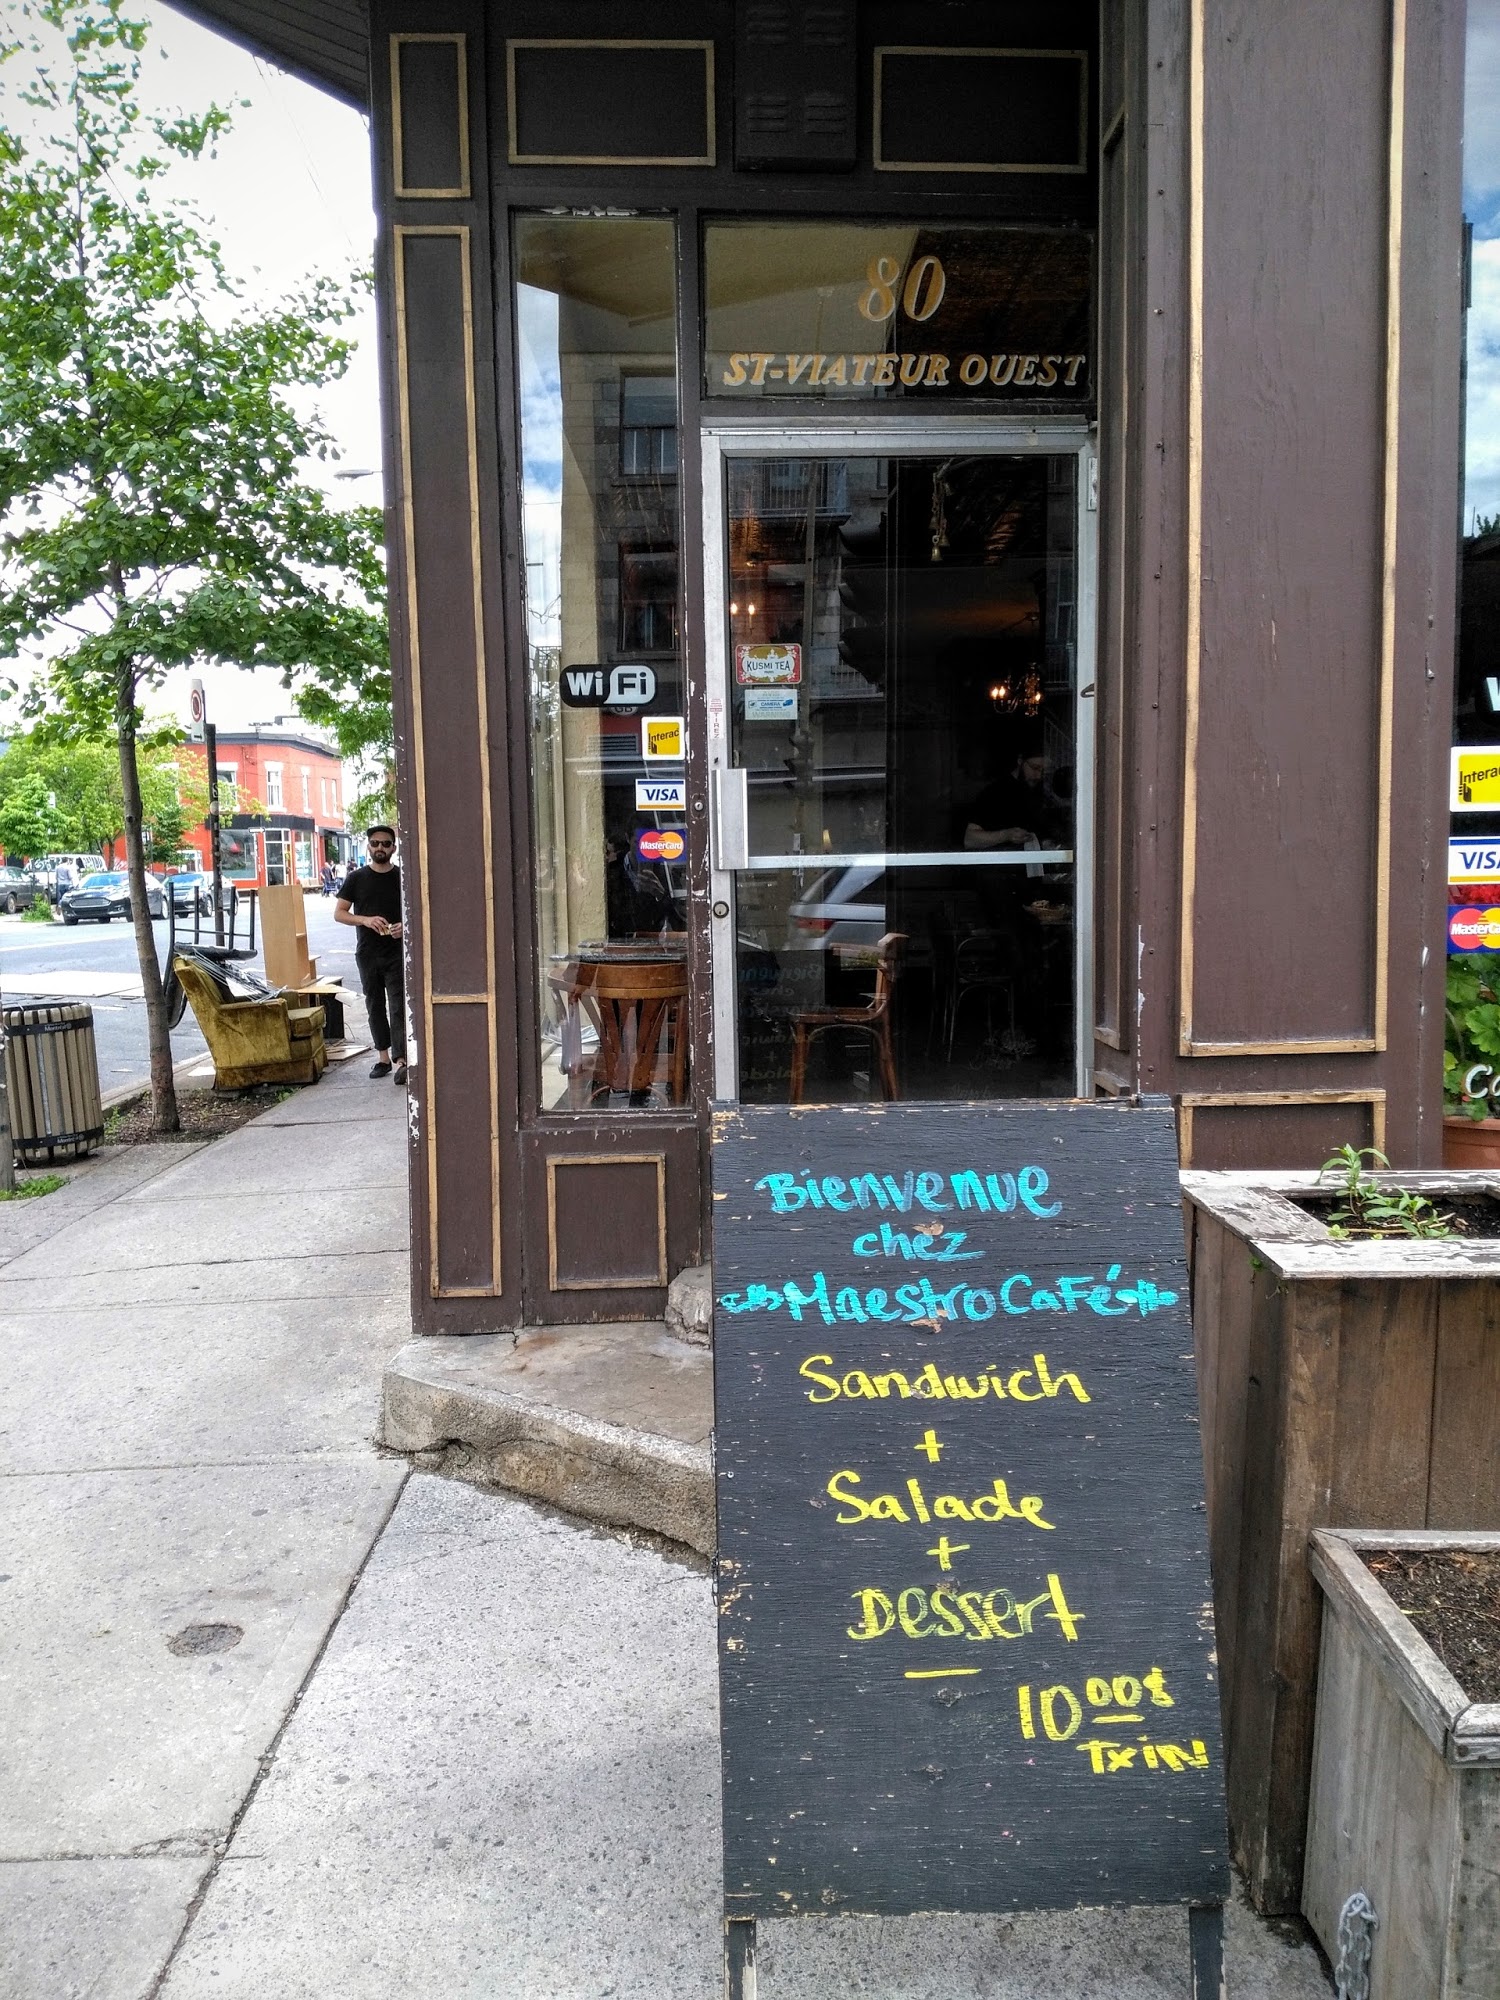 80
ST-VIATEUR OUEST
WiFi
Interac
VISA
MasterCard
KUSMI TEA
CAMERA
TIREZ
Interac
VISA
MasterCard
Bienvenue
chez
Maestro Café
Sandwich
+
Salade
+
Dessert
10.00$
Tx iN